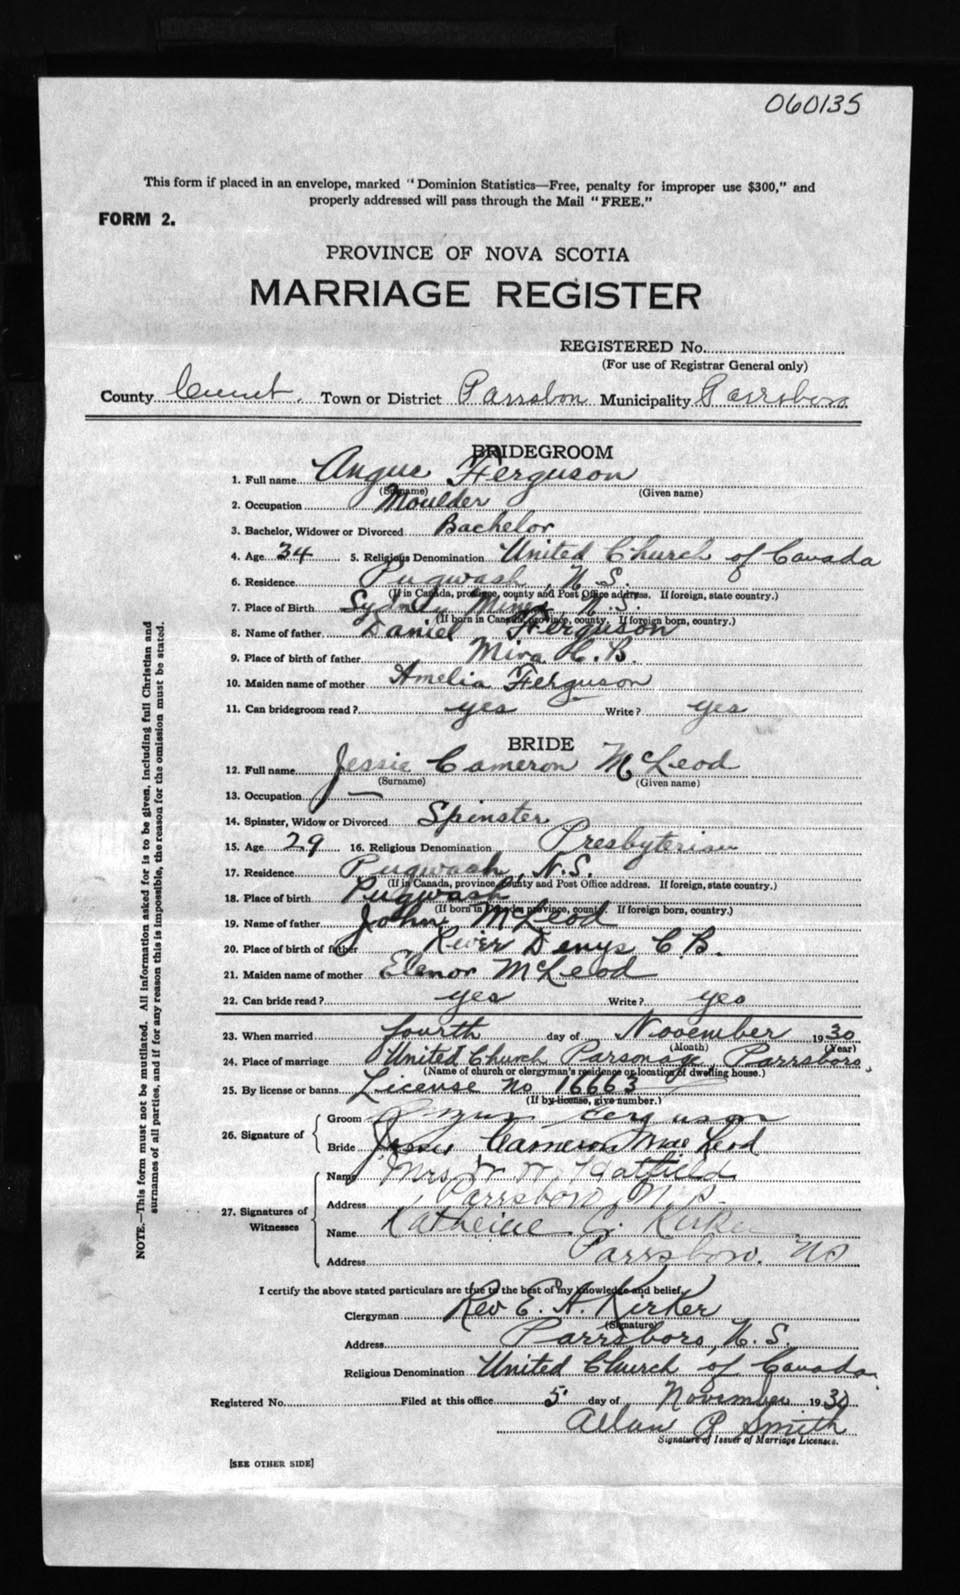 060135
This form if placed in an envelope, marked "Dominion Statistics—Free, penalty for improper use $300," and
properly addressed will pass through the Mail "FREE."
FORM 2.
PROVINCE OF NOVA SCOTIA
MARRIAGE REGISTER
REGISTERED No.
(For use of Registrar General only)
County Cumb. Town or District Parrsboro Municipality Parrsboro
BRIDEGROOM
1. Full name Angus Ferguson
(Surname) (Given name)
2. Occupation Moulder
3. Bachelor, Widower or Divorced Bachelor
4. Age 34 5. Religious Denomination United Church of Canada
6. Residence Pugwash, N.S.
(If in Canada, province, county and Post Office address. If foreign, state country.)
7. Place of Birth Sydney Mines, N.S.
(If born in Canada, province, county. If foreign born, country.)
8. Name of father Daniel Ferguson
9. Place of birth of father Mira C.B.
10. Maiden name of mother Amelia Ferguson
11. Can bridegroom read? yes Write? yes
BRIDE
12. Full name Jessie Cameron McLeod
(Surname) (Given name)
13. Occupation —
14. Spinster, Widow or Divorced Spinster
15. Age 29 16. Religious Denomination Presbyterian
17. Residence Pugwash, N.S.
(If in Canada, province, county and Post Office address. If foreign, state country.)
18. Place of birth Pugwash
(If born in Canada, province, county. If foreign born, country.)
19. Name of father John McLeod
20. Place of birth of father River Denys C B.
21. Maiden name of mother Elenor McLeod
22. Can bride read? yes Write? yes
23. When married fourth day of November 1930
(Month) (Year)
24. Place of marriage United Church Parsonage, Parrsboro,
(Name of church or clergyman's residence or location of dwelling house.)
25. By license or banns License no 16663
(If by license, give number.)
26. Signature of
Groom Angus Ferguson
Bride Jessie Cameron MacLeod
27. Signatures of Witnesses
Name Mrs W. W. Hatfield
Address Parrsboro, N.S.
Name Katherine C. Kirker
Address Parrsboro. NS
I certify the above stated particulars are true to the best of my knowledge and belief.
Clergyman Rev E. A. Kirker
(Signature)
Address Parrsboro, N.S.
Religious Denomination United Church of Canada.
Registered No. Filed at this office 5 day of November 1930
Allan P Smith
Signature of Issuer of Marriage Licenses.
[SEE OTHER SIDE]
NOTE.—This form must not be mutilated. All information asked for is to be given, including full Christian and
surnames of all parties, and if for any reason this is impossible, the reason for the omission must be stated.